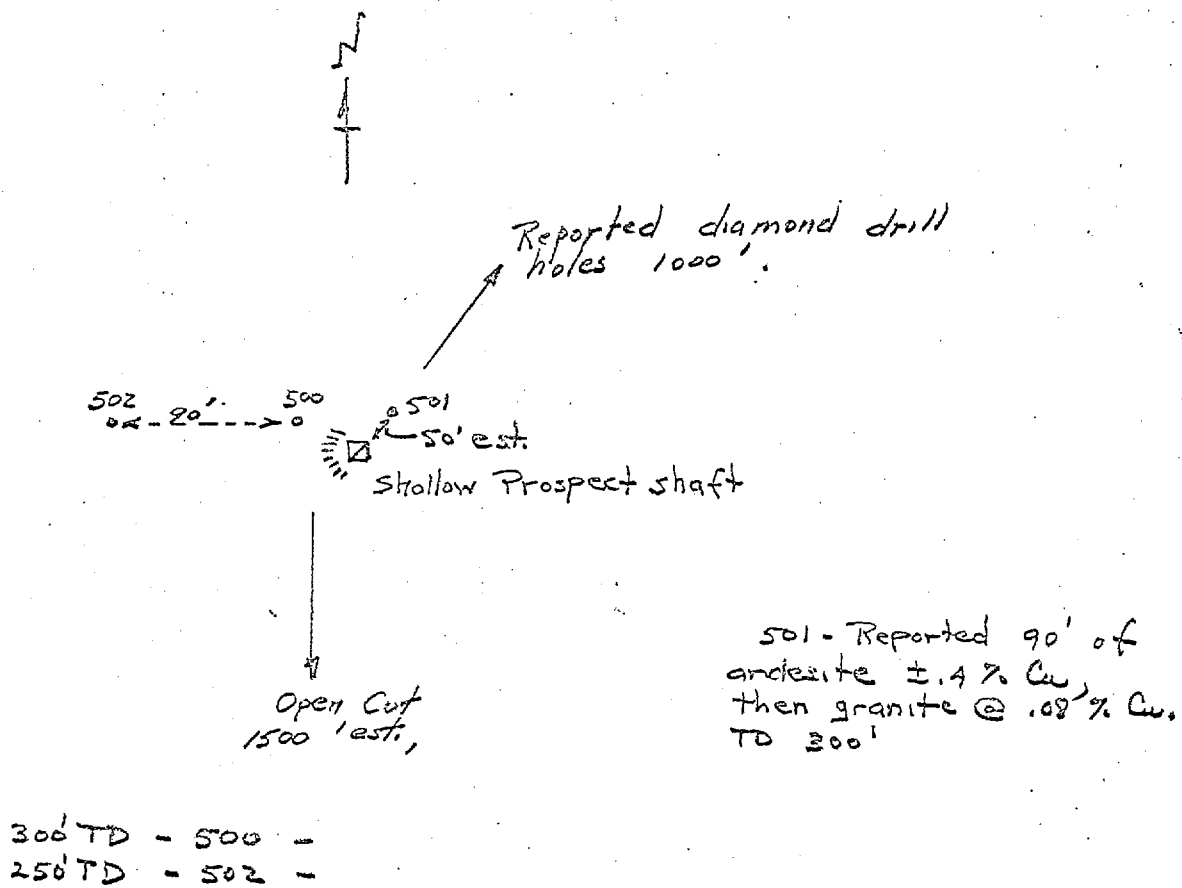 N
Reported diamond drill
holes 1000'.
502 500 501
20'.
50' est.
Shallow Prospect shaft
Open Cut
1500' est.,
501 - Reported 90' of
andesite ±.4 % Cu,
then granite @ .08 % Cu.
TD 300'
300' TD - 500 -
250' TD - 502 -